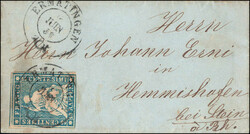 ERMATINGEN
Herrn
Herrn Johann Erni in
Hemmishofen
bei Stein
a. Rh.